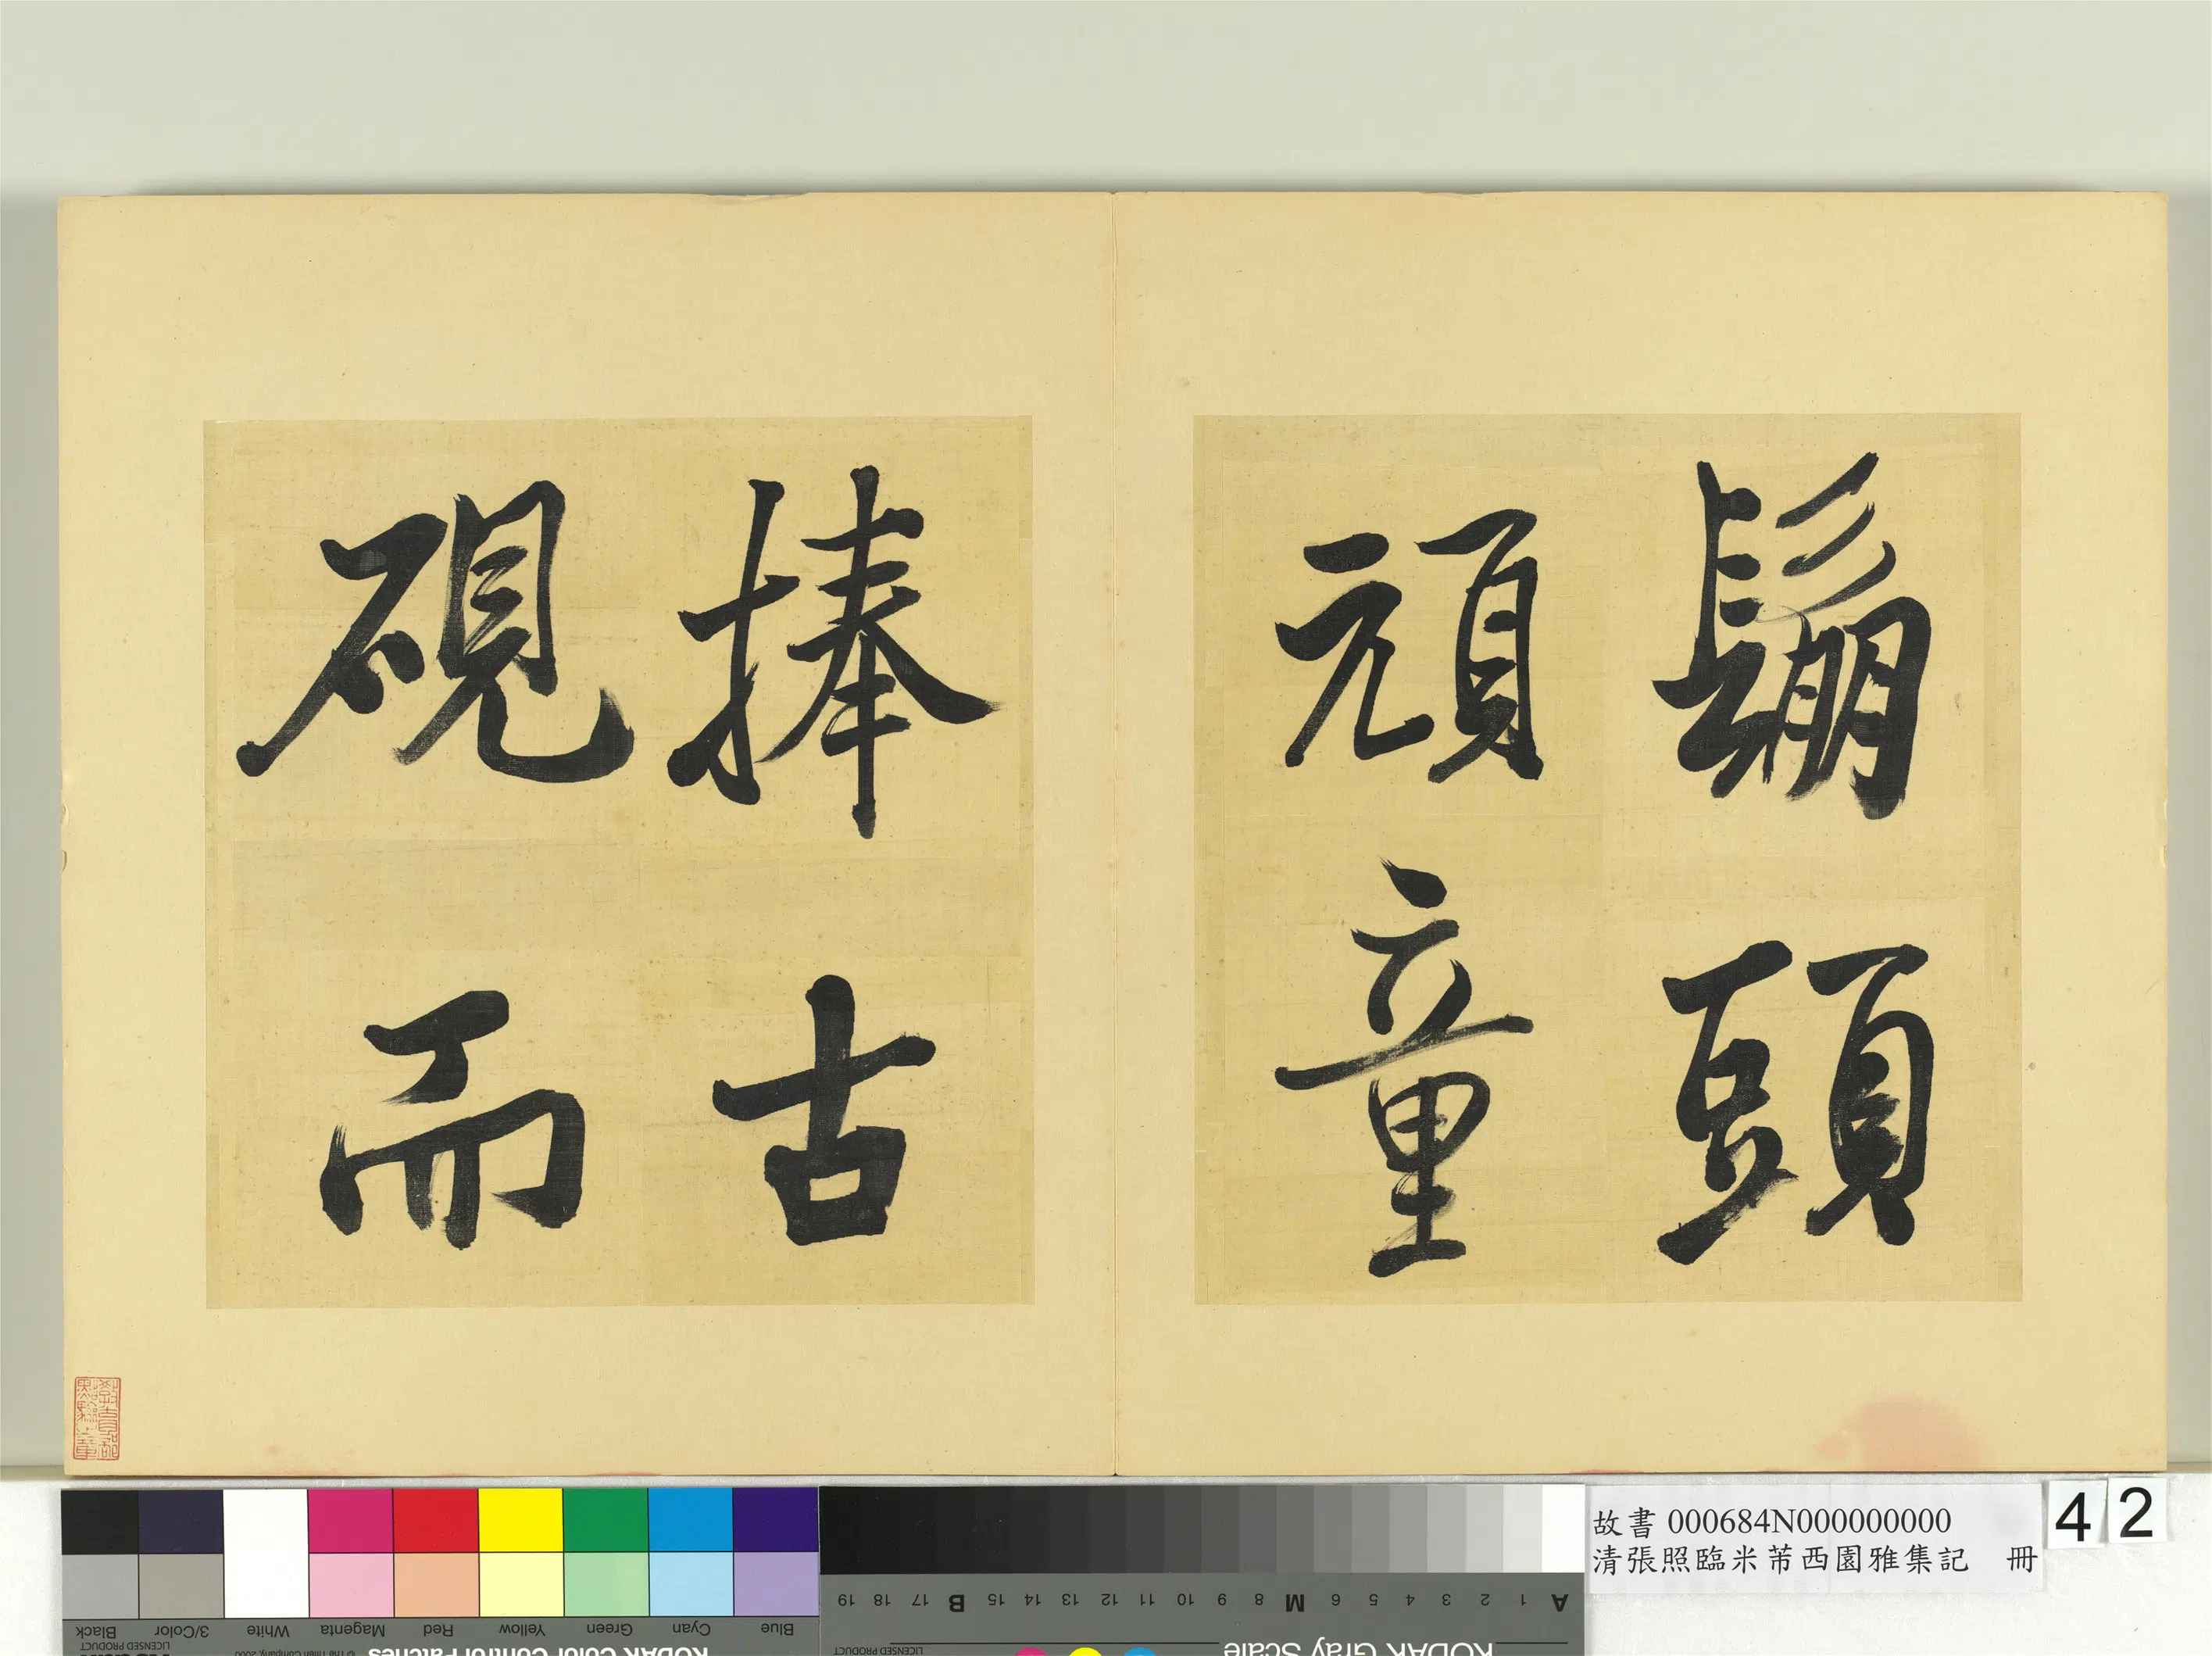 鬅頭
頑童
捧古
硯而
教育部
點驗之章
故書 000684N000000000
清張照臨米芾西園雅集記 冊
4 2
KODAK Color Control Patches
© The Tiffen Company, 2000
LICENSED PRODUCT
Blue Cyan Green Yellow Red Magenta White 3/Color Black
KODAK Gray Scale
LICENSED PRODUCT
A 1 2 3 4 5 6 M 8 9 10 11 12 13 14 15 B 17 18 19